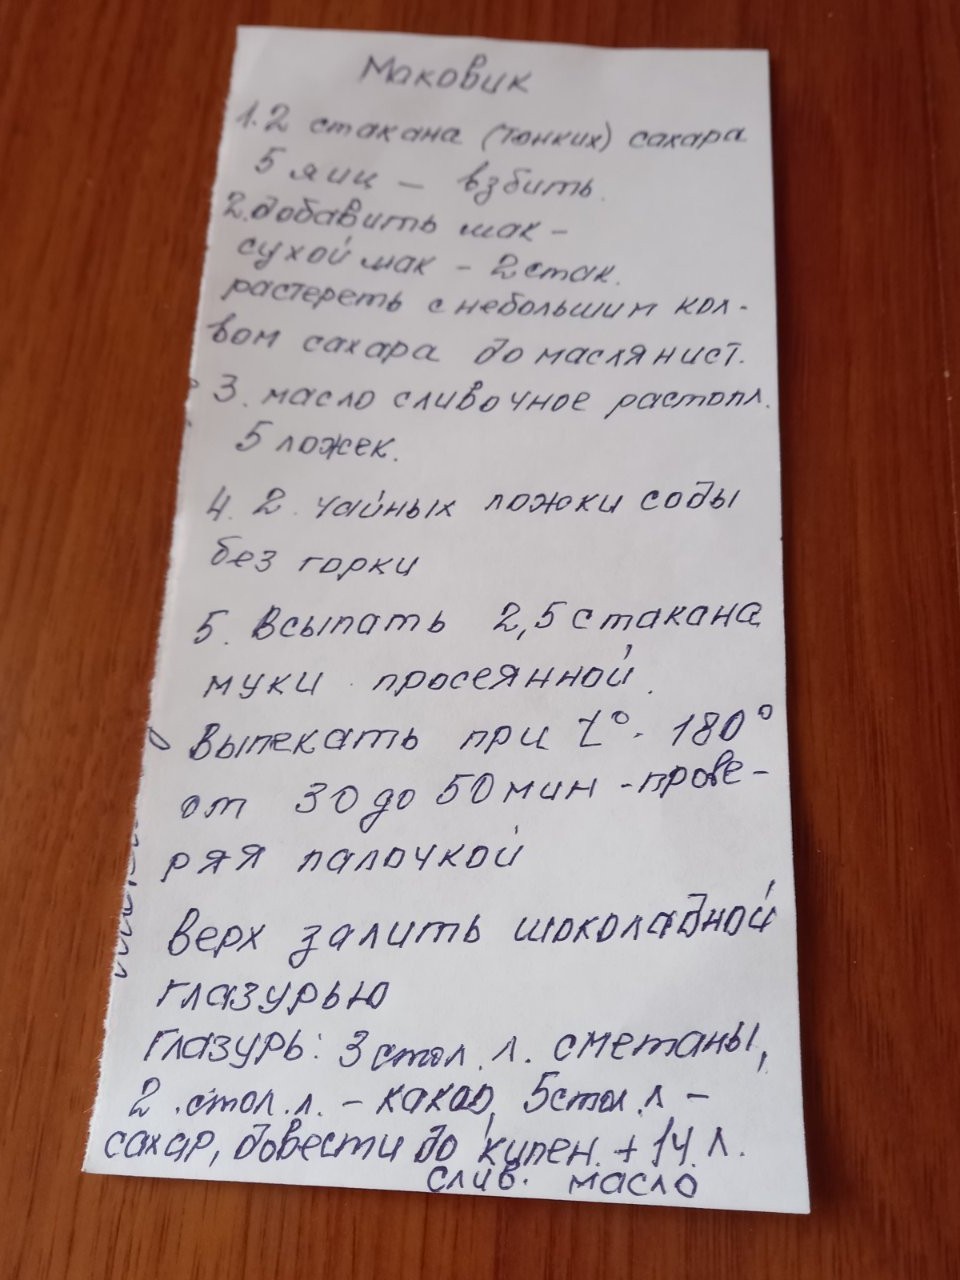 Маковик
1. 2 стакана (тонких) сахара
5 яиц – взбить.
2. добавить мак –
сухой мак – 2 стак.
растереть с небольшим кол-
вом сахара до маслянист.
3. масло сливочное растопл.
5 ложек.
4. 2. чайных ложки соды
без горки
5. Всыпать 2,5 стакана
муки просеянной.
Выпекать при t°. 180°
от 30 до 50 мин – прове-
ряя палочкой
Верх залить шоколадной
глазурью
Глазурь: 3 стол. л. сметаны,
2 стол. л. – какао, 5 стол. л –
сахар, довести до кипен. + 1 ч. л.
слив. масло